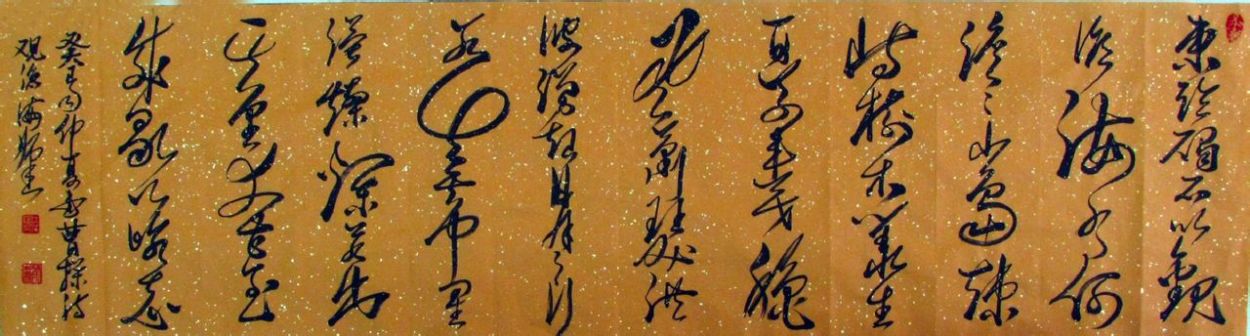 東臨碣石以觀
滄海水何
澹々山島竦
峙樹木叢生
百草豐茂穐
風蕭瑟洪
波湧起日月之行
若出其中星
漢燦爛若出
其里幸甚至
哉歌以詠志
癸巳仲夏書曹操詩
观滄海